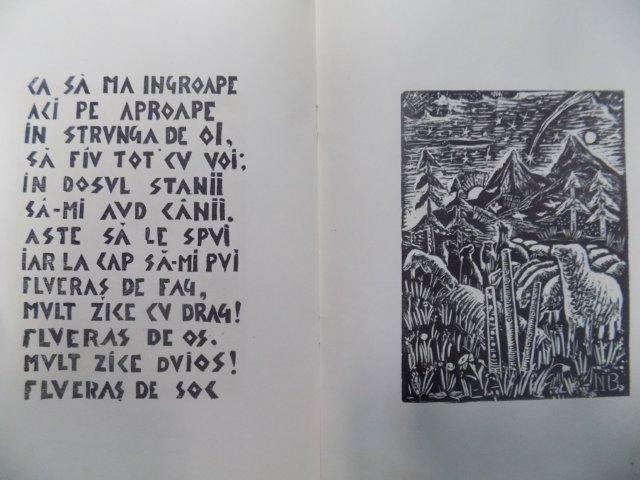 CA SĂ MA INGROAPE
ACI PE APROAPE
IN STRVNGA DE OI,
SĂ FIV TOT CV VOI;
IN DOSVL STANII
SĂ-MI AVD CÂNII.
ASTE SĂ LE SPVI
IAR LA CAP SĂ-MI PVI
FLVERAS DE FAG,
MVLT ZICE CV DRAG!
FLVERAS DE OS.
MVLT ZICE DVIOS!
FLVERAȘ DE SOC
NB